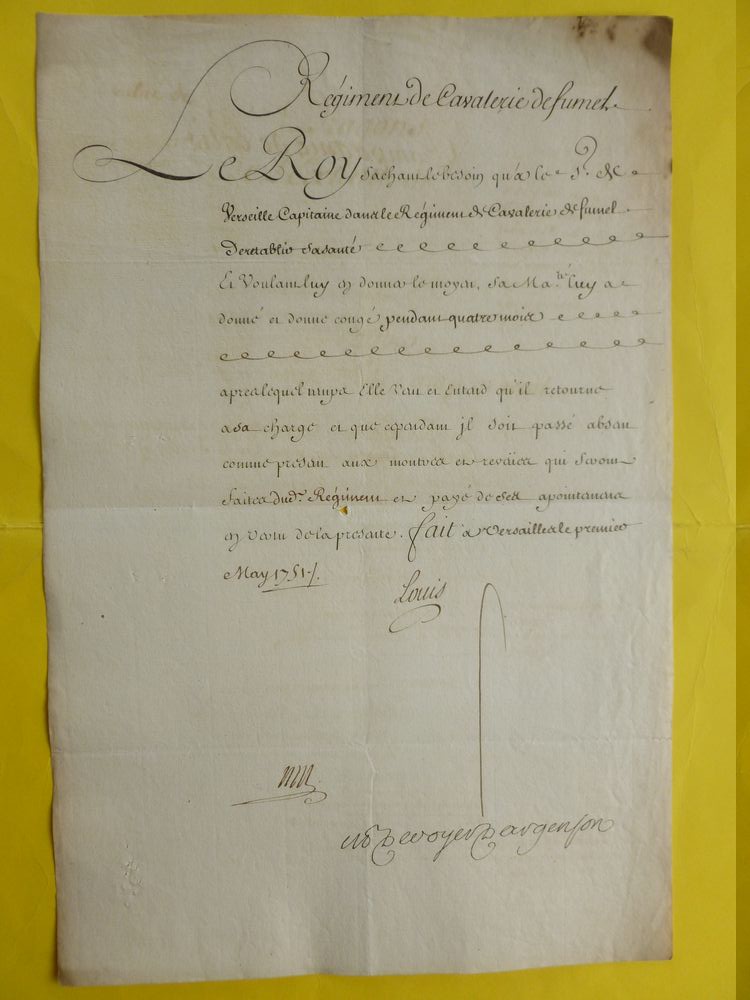 Régiment de Cavalerie de fumel.
Le Roy sachant le besoin qu'a le Sr. de
Verseille Capitaine dans le Régiment de Cavalerie de fumel
de retablir sa santé
Et Voulant luy en donner le moyen, sa Ma.té luy a
donné et donne congé pendant quatre mois
apres lequel temps Elle Veut et Entend qu'il retourne
a sa charge et que cependant jl soit passé absent
comme present aux montres et reveües qui seront
faites dud. Régiment et payé de ses apointemens
en vertu de la presente. fait a Versailles le premier
May 1751./.
Louis
M De voyer D'argenson